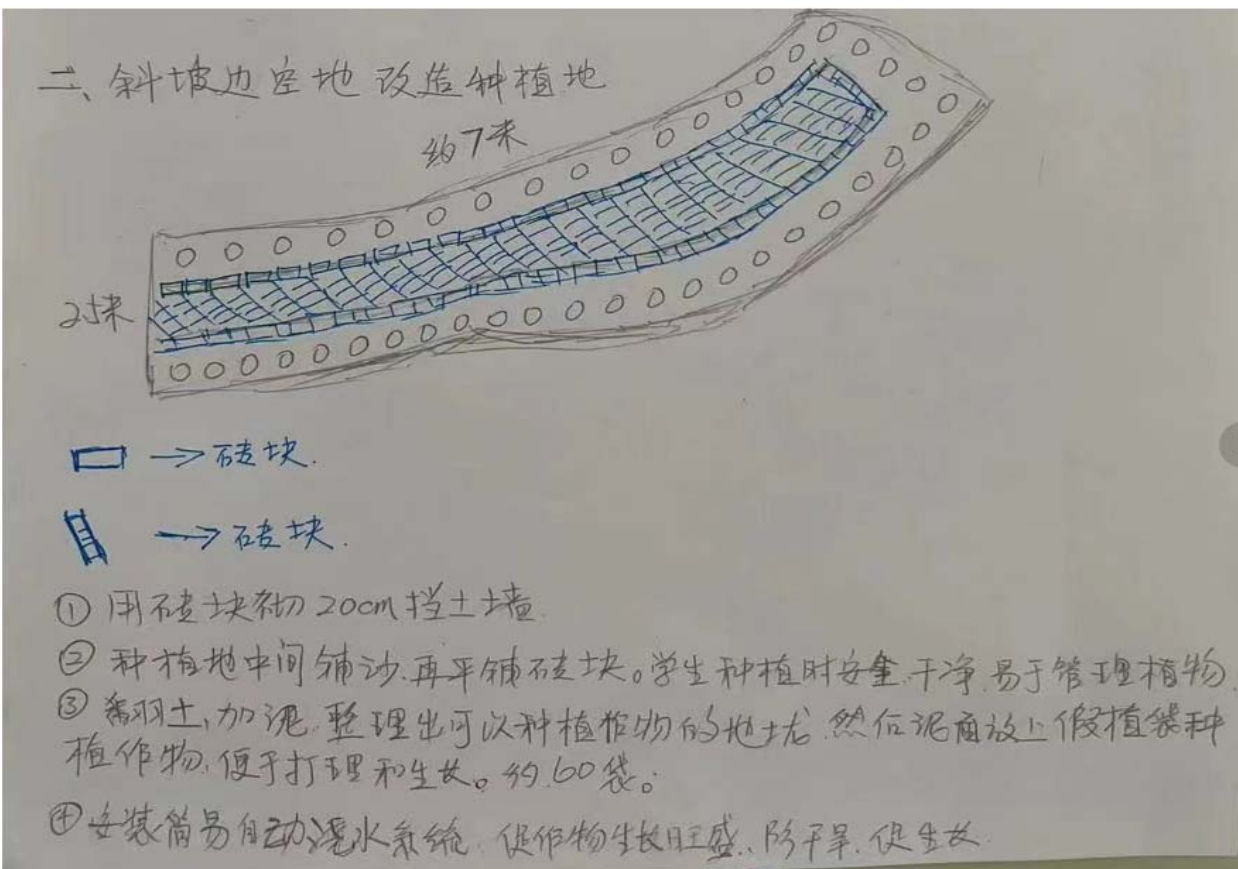 二、斜坡边空地改造种植地
约7米
2.5米
→砖块.
→砖块.
①用砖块砌20cm挡土墙.
②种植地中间铺沙.再平铺砖块。学生种植时安全.干净.易于管理植物.
③翻土,加泥.整理出可以种植作物的地垅.然后泥面放上假植袋种
植作物,便于打理和生长。约.60袋。
④安装简易自动浇水系统.促作物生长旺盛.防干旱.促生长.